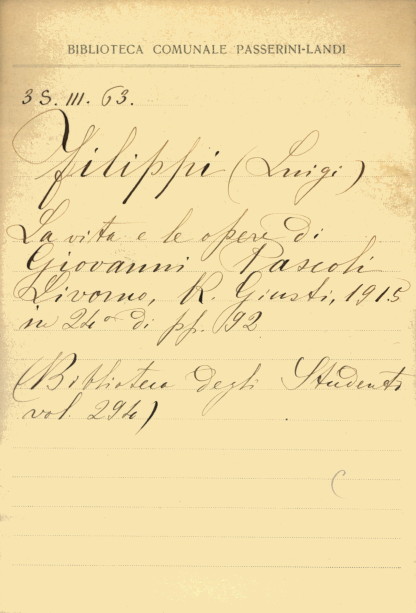 BIBLIOTECA COMUNALE PASSERINI-LANDI
3S. III. 63.
Filippi (Luigi)
La vita e le opere di
Giovanni Pascoli
Livorno, R. Giusti, 1915
in 24° di pp. 92
(Biblioteca degli Studenti
vol. 294)